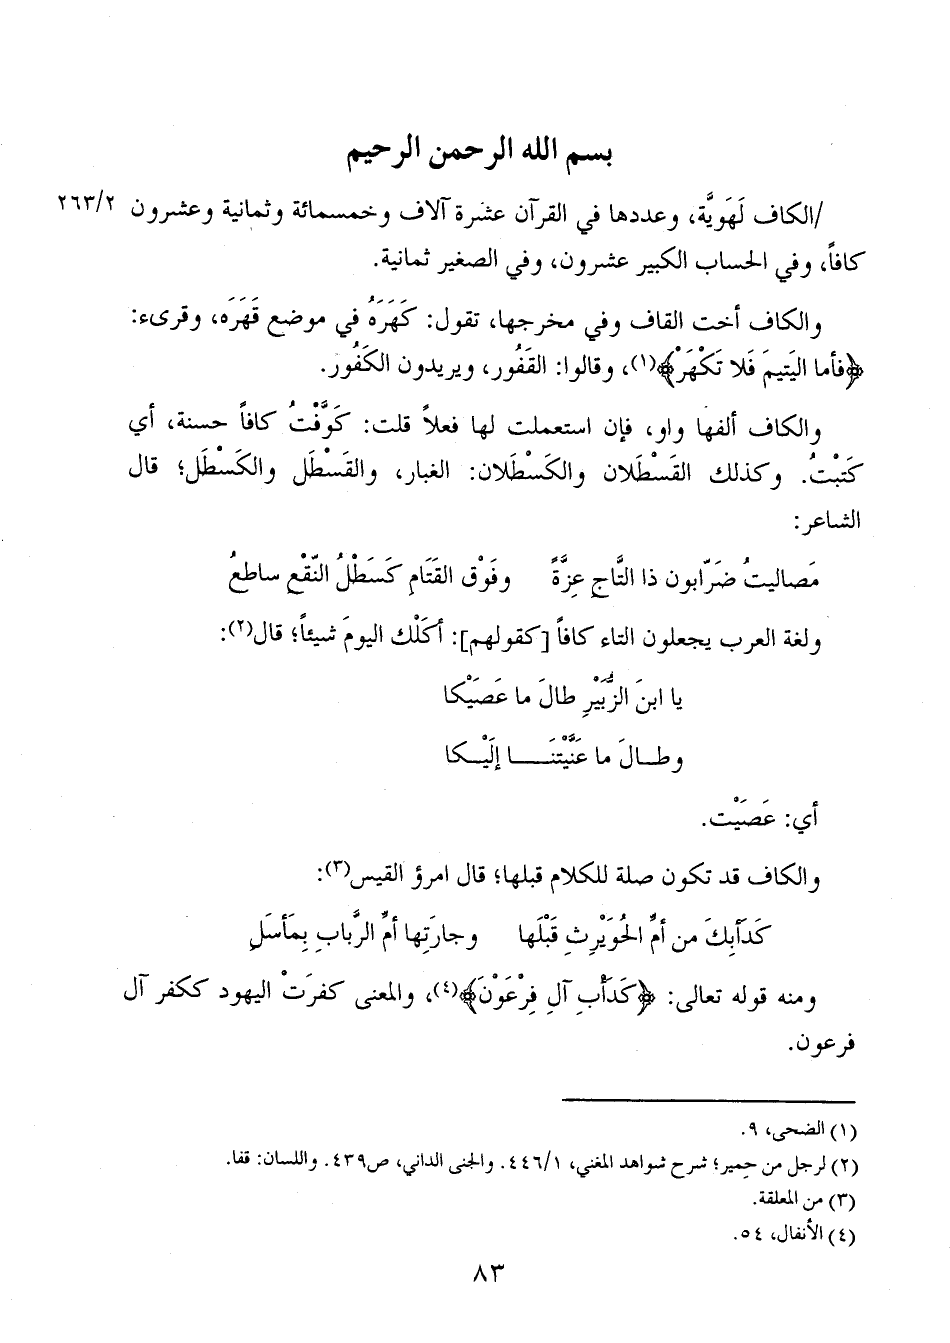 بسم الله الرحمن الرحيم
/الكاف لَهَوِيَّة، وعددها في القرآن عشرة آلاف وخمسمائة وثمانية وعشرون ٢٦٣/٢
كافاً، وفي الحساب الكبير عشرون، وفي الصغير ثمانية.
والكاف أخت القاف وفي مخرجها، تقول: كَهَرَهُ في موضع قَهَرَه، وقرىء:
﴿فأما اليَتيمَ فَلا تَكْهَرْ﴾(١)، وقالوا: القَفُور، ويريدون الكَفُور.
والكاف ألفها واو، فإن استعملت لها فعلاً قلت: كَوَّفْتُ كافاً حسنة، أي
كَتَبْتُ. وكذلك القَسْطَلان والكَسْطَلان: الغبار، والقَسْطَل والكَسْطَل؛ قال
الشاعر:
مَصاليتُ ضَرّابون ذا التَّاجِ عِزَّةً وفَوْق القَتَامِ كَسَطْلُ النّقْع ساطعُ
ولغة العرب يجعلون التاء كافاً [كقولهم]: أكَلْك اليومَ شيئاً؛ قال(٢):
يا ابنَ الزُّبَيْرِ طالَ ما عَصَيْكا
وطـالَ ما عَنَّيْتَنَـــا إلَيْـكا
أي: عَصَيْت.
والكاف قد تكون صلة للكلام قبلها؛ قال امرؤ القيس(٣):
كَدَأبِكَ من أمِّ الحُوَيْرِثِ قَبْلَها وجارَتِها أمِّ الرَّبابِ بِمَأسَلِ
ومنه قوله تعالى: ﴿كَدَأْبِ آلِ فِرْعَوْنَ﴾(٤)، والمعنى كفرَتْ اليهود ككفر آل
فرعون.
(١) الضحى، ٩.
(٢) لرجل من حِمير؛ شرح شواهد المغني، ٤٤٦/١. والجنى الداني، ص٤٣٩. واللسان: قفا.
(٣) من المعلقة.
(٤) الأنفال، ٥٤.
٨٣